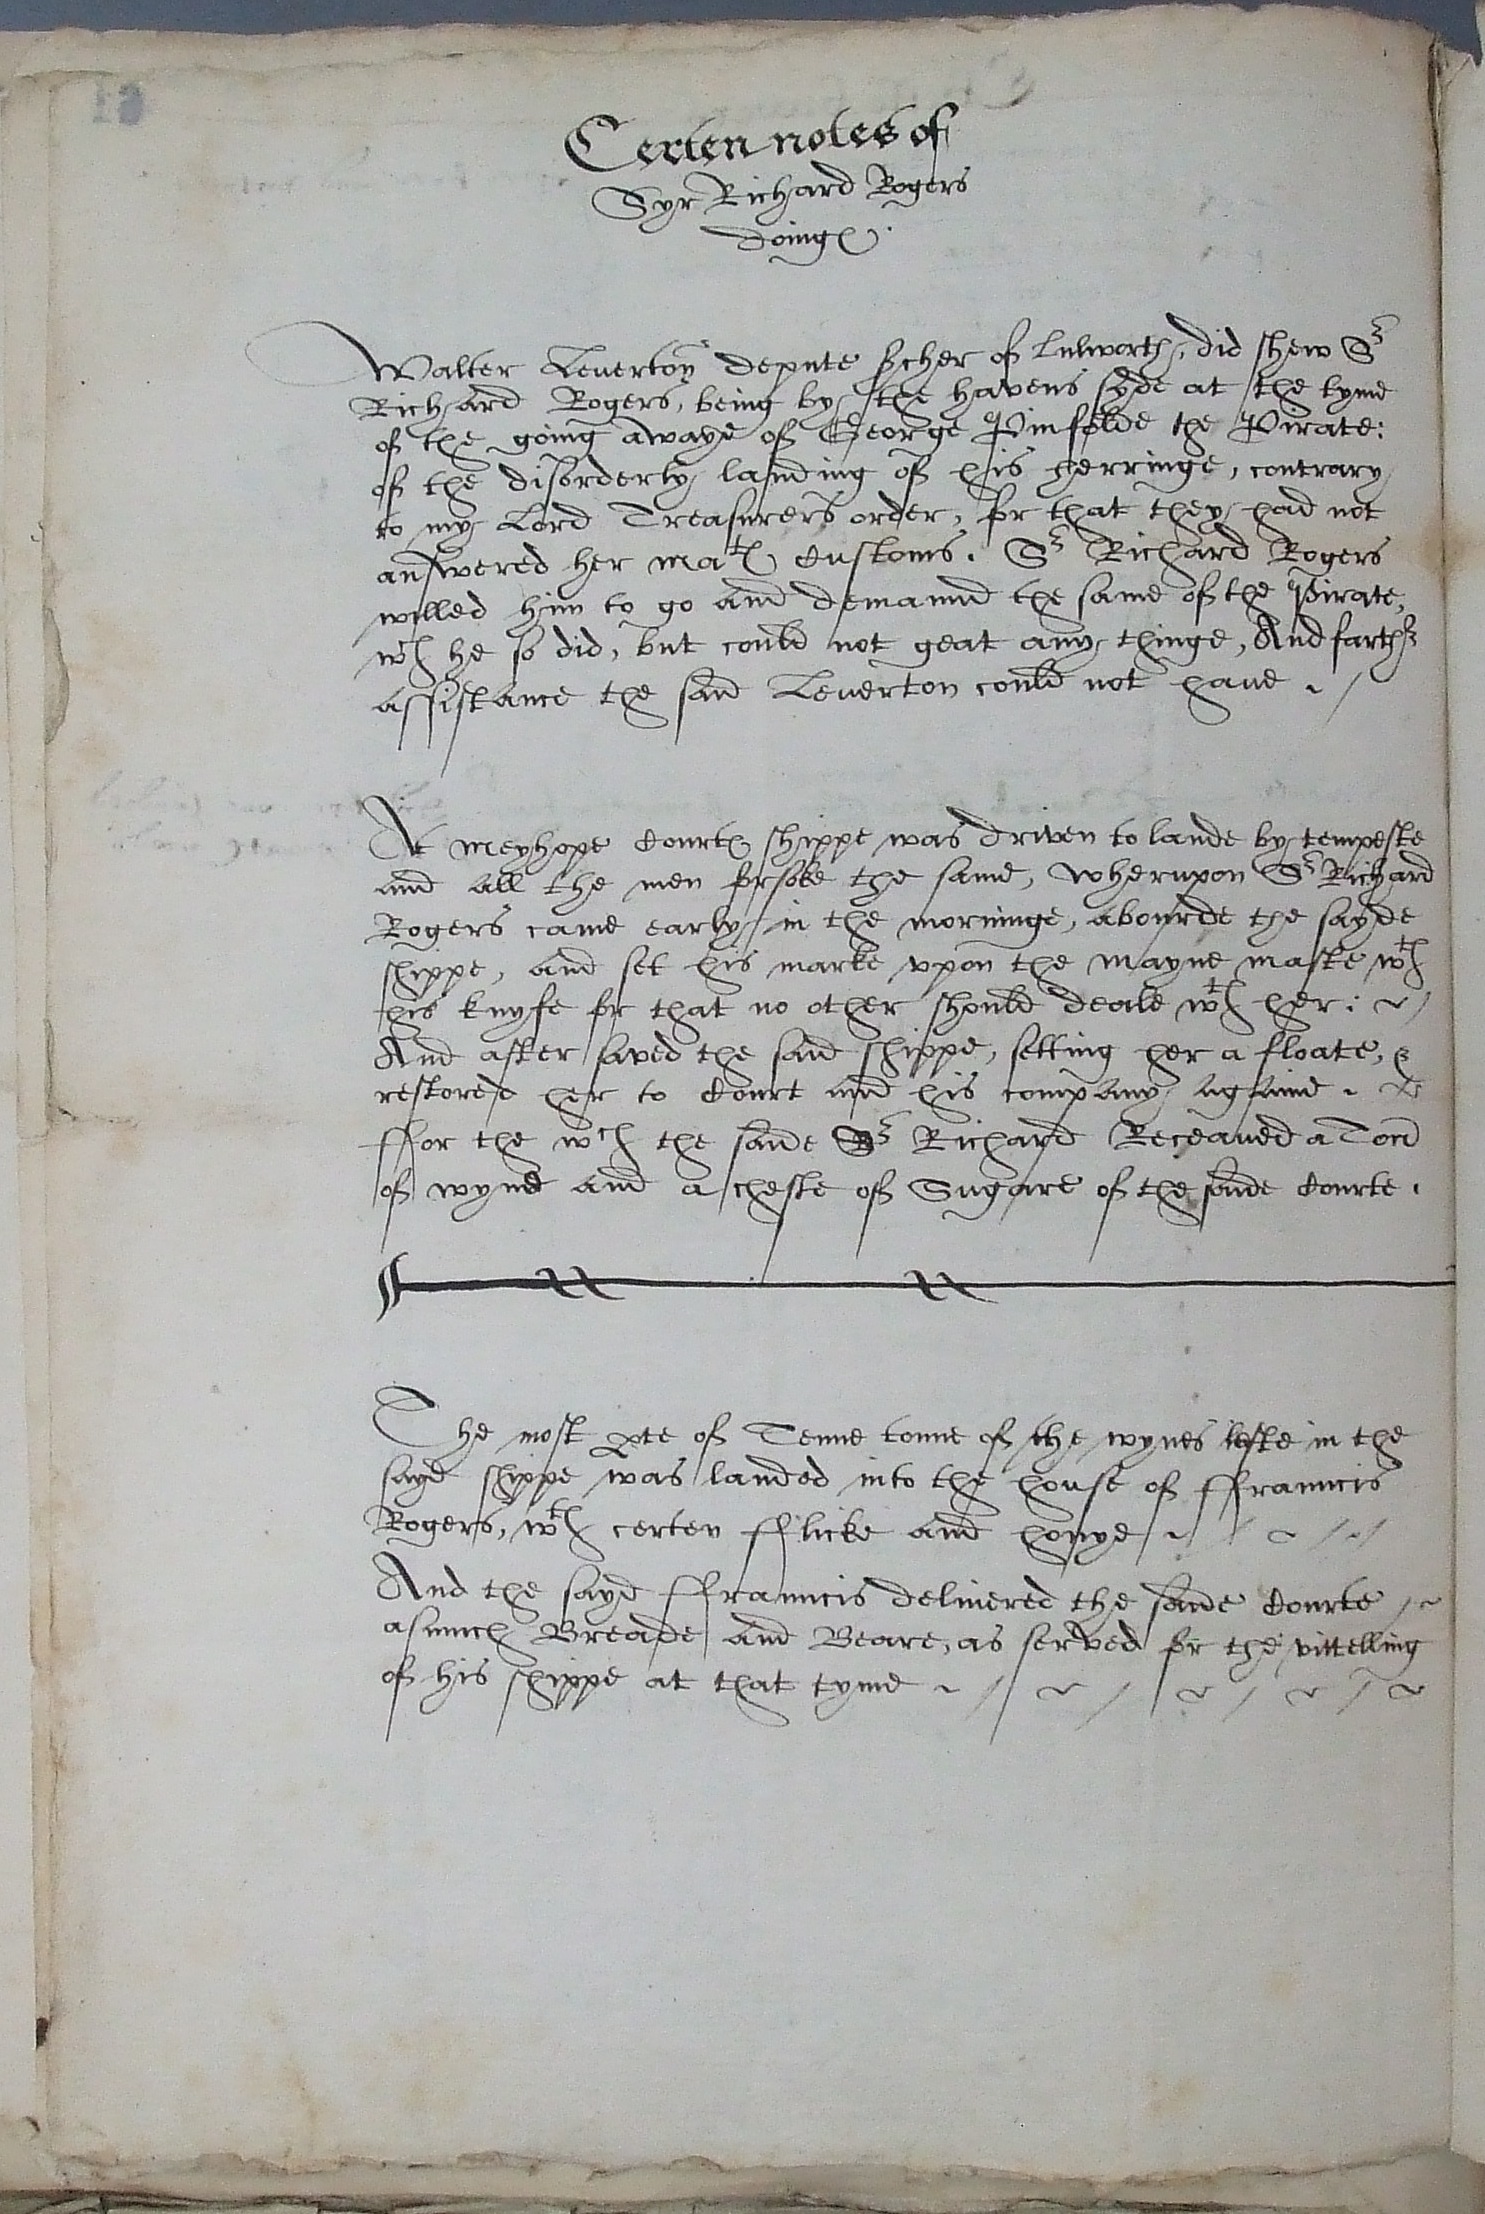 Certen notes of
Syr Richard Rogers
doinges.
Walter Leverton depute sęcher of Lulworth, did shew Sr
Richard Rogers, being by the havens syde at the tyme
of the going awaye of George Pinfolde the Pirate:
of the disorderly landing of his herringe, contrary
to my Lord Treasurers order, for that they had not
answered her matᵉˢ Customs. Sr Richard Rogers
willed him to go and demaund the same of the Pirate,
wch he so did, but could not geat any thinge, And farther
assistance the said Leverton could not have.
At Meyhope Courtes shippe was driven to lande by tempeste
and all the men forsoke the same, wherupon Sr Richard
Rogers came early in the morninge, abourde the sayde
shippe, and set his marke upon the mayne maste wth
his knyfe for that no other should deale wth her:
And after saved the said shippe, setting her a floate, &
restored her to Court and his company againe.
ffor the wch the saide Sr Richard Receaued a Tonn
of wyne and a cheste of Sugare of the saide Courte.
The most pte of Tenne tonne of the wynes lefte in the
sayd shippe was landed into the house of ffrauncis
Rogers, wth certen and honye
And the sayd ffrauncis delivered the saide Courte
asmuch Breade and Beare, as served for the vittelling
of his shippe at that tyme